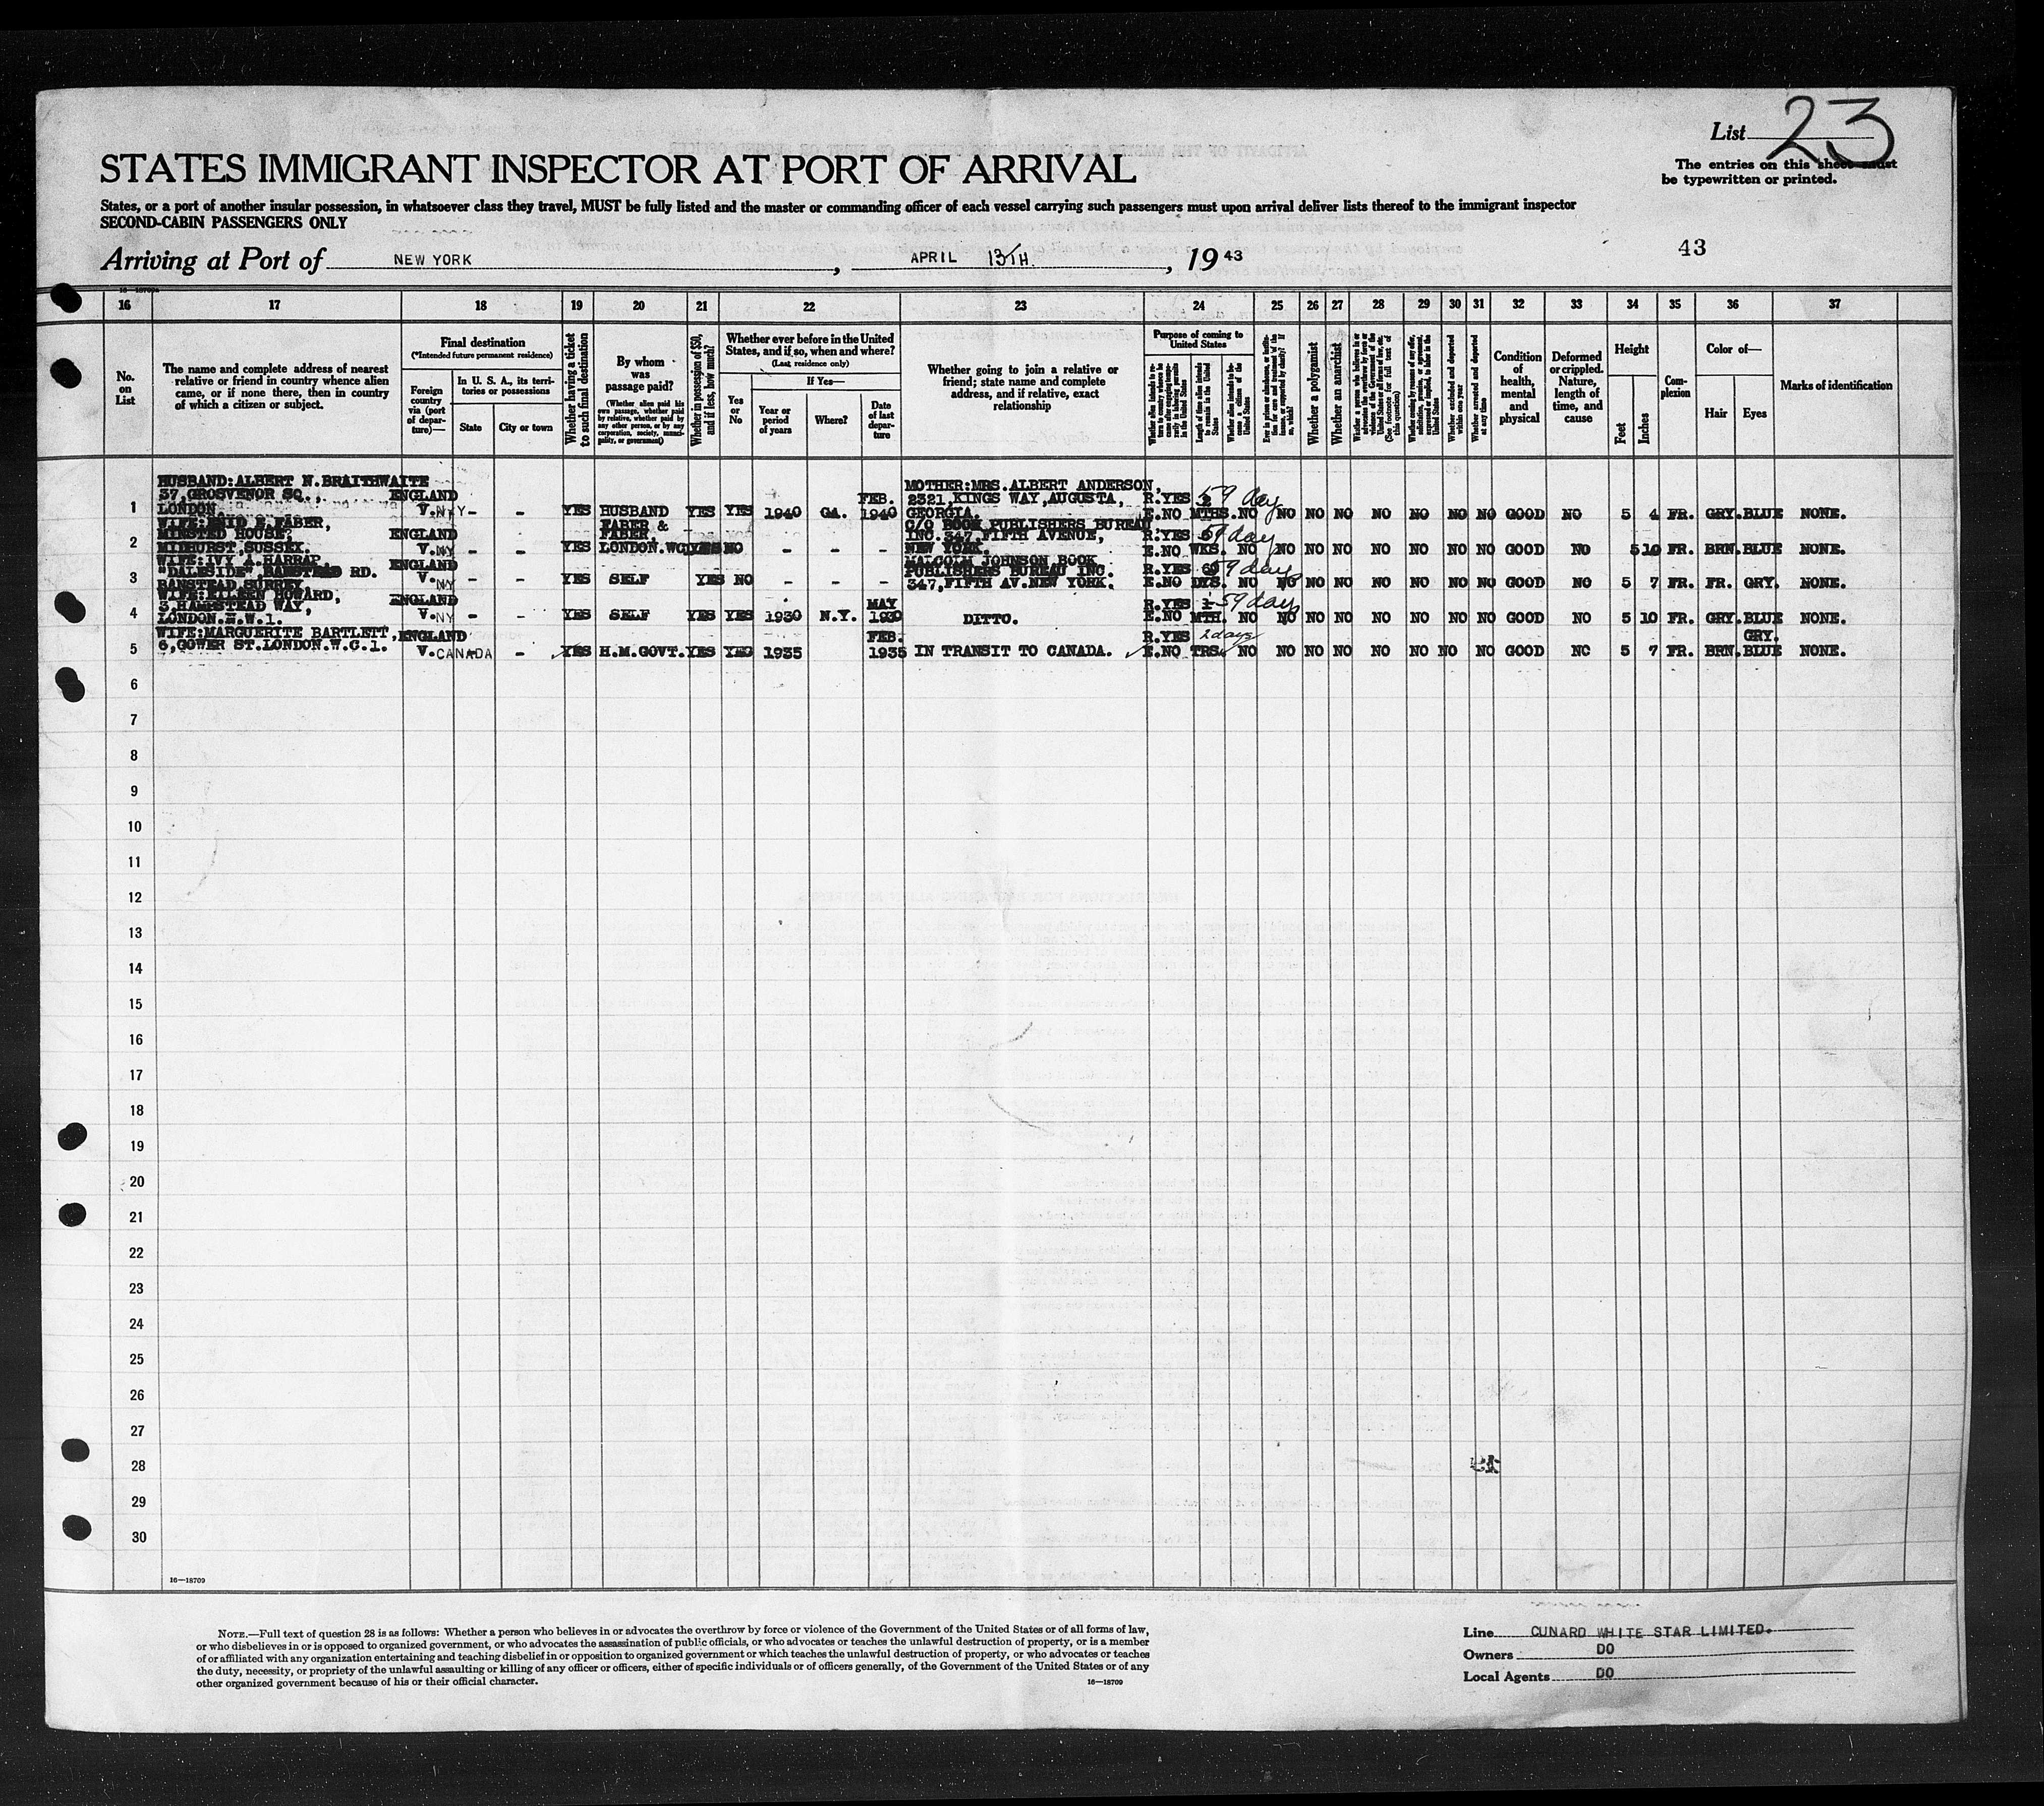 List 23
The entries on this sheet must
be typewritten or printed.
STATES IMMIGRANT INSPECTOR AT PORT OF ARRIVAL
States, or a port of another insular possession, in whatsoever class they travel, MUST be fully listed and the master or commanding officer of each vessel carrying such passengers must upon arrival deliver lists thereof to the immigrant inspector
SECOND-CABIN PASSENGERS ONLY
Arriving at Port of NEW YORK, APRIL 13TH., 19 43
43
16 17 18 19 20 21 22 23 24 25 26 27 28 29 30 31 32 33 34 35 36 37
No. on List
The name and complete address of nearest
relative or friend in country whence alien
came, or if none there, then in country
of which a citizen or subject.
Final destination
(*Intended future permanent residence)
Foreign
country
via (port
of depar-
ture)—
In U. S. A., its terri-
tories or possessions
State
City or town
Whether having a ticket
to such final destination
By whom
was
passage paid?
(Whether alien paid his
own passage, whether paid
by relative, whether paid by
any other person, or by any
corporation, society, munici-
pality, or government)
Whether in possession of $50,
and if less, how much?
Whether ever before in the United
States, and if so, when and where?
(Last residence only)
If Yes—
Yes
or
No
Year or
period
of years
Where?
Date
of last
depar-
ture
Whether going to join a relative or
friend; state name and complete
address, and if relative, exact
relationship
Purpose of coming to
United States
Whether a polygamist
Whether an anarchist
Condition
of
health,
mental
and
physical
Deformed
or crippled.
Nature,
length of
time, and
cause
Height
Feet
Inches
Com-
plexion
Color of—
Hair
Eyes
Marks of identification
HUSBAND:ALBERT N.BRAITHWAITE
37,GROSVENOR SQ., ENGLAND FEB. MOTHER:MRS.ALBERT ANDERSON,
2321,KINGS WAY,AUGUSTA, R.YES 59 day
1 LONDON V.NY - - YES HUSBAND YES YES 1940 GA. 1940 GEORGIA. E.NO MTHS. NO NO NO NO NO NO NO NO GOOD NO 5 4 FR. GRY. BLUE NONE.
WIFE:ENID E.FABER, FABER & C/O BOOK PUBLISHERS BUREAU
MINSTED HOUSE, ENGLAND FABER, INC.347,FIFTH AVENUE, R.YES 59 day
2 MIDHURST,SUSSEX. V.NY - - YES LONDON.WC1 YES NO - - - NEW YORK. E.NO WKS. NO NO NO NO NO NO NO NO GOOD NO 5 10 FR. BRN. BLUE NONE.
WIFE:IVY A.HARRAP, ENGLAND MALCOLM JOHNSON BOOK
"DALESIDE", BANSTEAD RD. PUBLISHERS BUREAU INC. R.YES 59 days
3 BANSTEAD,SURREY. V.NY - - YES SELF YES NO - - - 347,FIFTH AV.NEW YORK. E.NO DYS. NO NO NO NO NO NO NO NO GOOD NO 5 7 FR. FR. GRY. NONE.
WIFE:EILEEN HOWARD, ENGLAND
3,HAMPSTEAD WAY, MAY R.YES 1 59 days
4 LONDON.N.W.1. V.NY - - YES SELF YES YES 1930 N.Y. 1930 DITTO. E.NO MTH. NO NO NO NO NO NO NO NO GOOD NO 5 10 FR. GRY. BLUE NONE.
WIFE:MARGUERITE BARTLETT, ENGLAND FEB. R.YES 2 days GRY.
5 6,GOWER ST.LONDON.W.C.1. V.CANADA - YES H.M.GOVT. YES YES 1935 1935 IN TRANSIT TO CANADA. E.NO TRS. NO NO NO NO NO NO NO NO GOOD NO 5 7 FR. BRN. BLUE NONE.
6
7
8
9
10
11
12
13
14
15
16
17
18
19
20
21
22
23
24
25
26
27
28
29
30
16—18709
NOTE.—Full text of question 28 is as follows: Whether a person who believes in or advocates the overthrow by force or violence of the Government of the United States or of all forms of law,
or who disbelieves in or is opposed to organized government, or who advocates the assassination of public officials, or who advocates or teaches the unlawful destruction of property, or is a member
of or affiliated with any organization entertaining and teaching disbelief in or opposition to organized government or which teaches the unlawful destruction of property, or who advocates or teaches
the duty, necessity, or propriety of the unlawful assaulting or killing of any officer or officers, either of specific individuals or of officers generally, of the Government of the United States or of any
other organized government because of his or their official character.
16—18709
Line CUNARD WHITE STAR LIMITED.
Owners DO
Local Agents DO